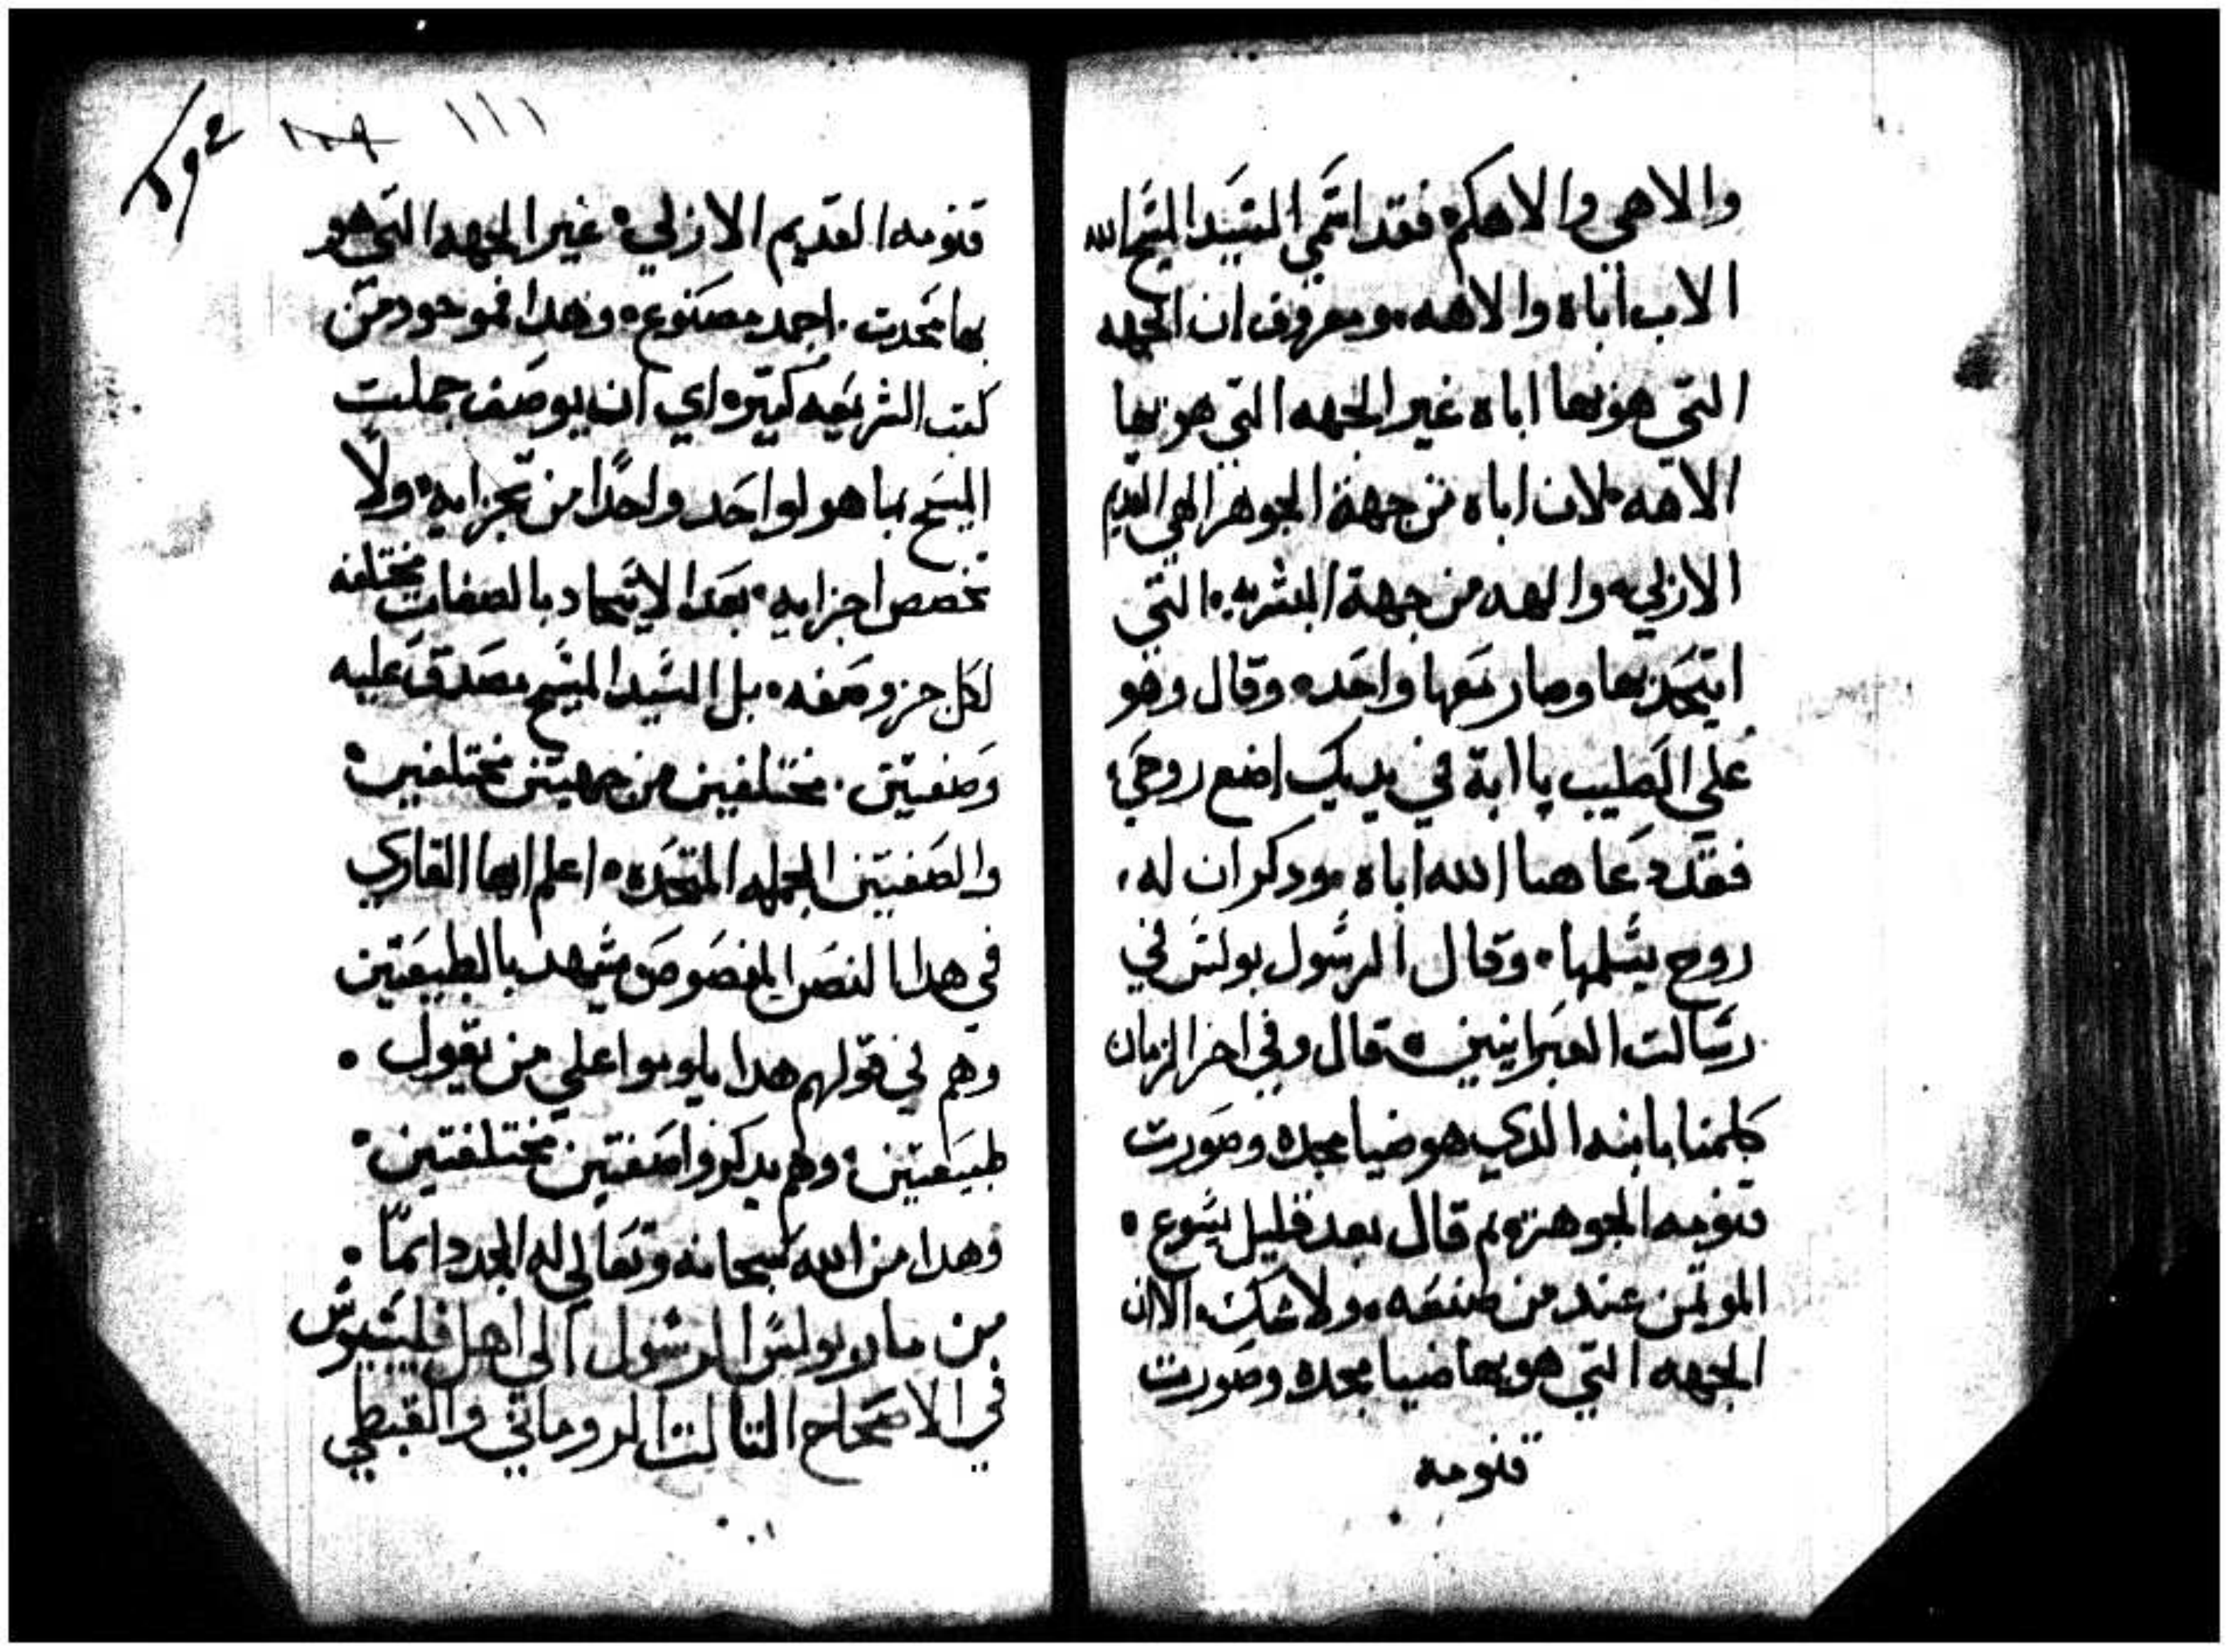 والاهي والاهكم فقد اسمي السيد المسيح الله
الاب اباه والاهه ومعروف ان الجهه
التي هو بها اباه غير الجهه التي هو بها
الاهه لان اباه من جهة الجوهر الهي القديم
الازلي والهه من جهة البشريه التي
اتيحد بها وصار معها واحده وقال وهو
علي الصليب يا ابة في يديك اضع روحي
فقد دعا هنا الله اباه ودكر ان له
روح يسلمها وقال الرسول بولس في
رسالت العبرانيين قال وفي اخر الزمان
كلمنا بابنه الدي هو ضيا مجده وصورت
قنومه الجوهريه تم قال بعد قليل يسوع
الموتمن عند من صنعه ولا شك الان
الجهه التي هو بها ضيا مجده وصورت
قنومه
2ولا
١٠٩ ١١١
قنومه القديم الازلي غير الجهه التي هو
بها محدت احمد مصنوع وهدا فموجود من
كتب الشريعه كتيره اي ان يوصف جملت
المسيح بما هو لواحد واحدًا من تجزايه ولا
تخصص اجزايه بعد الاتحاد بالصفات مختلفه
لكل جزو صفه بل السيد المسيح بصدق عليه
وصفتين مختلفين من جهيتين مختلفين
والصفتين الجمله المتحده اعلم ايها القاري
في هدا النص المنصوص يشهد بالطبيعتين
وهم في قولهم هدا يلوموا علي من يقول
طبيعتين وهم يدكروا صفتين مختلفتين
وهدا من الله سبحانه وتعالي له المجد دايمًا
من مار بولس الرسول الي اهل فليبسيوس
في الاصحاح التالت الروماني والقبطي